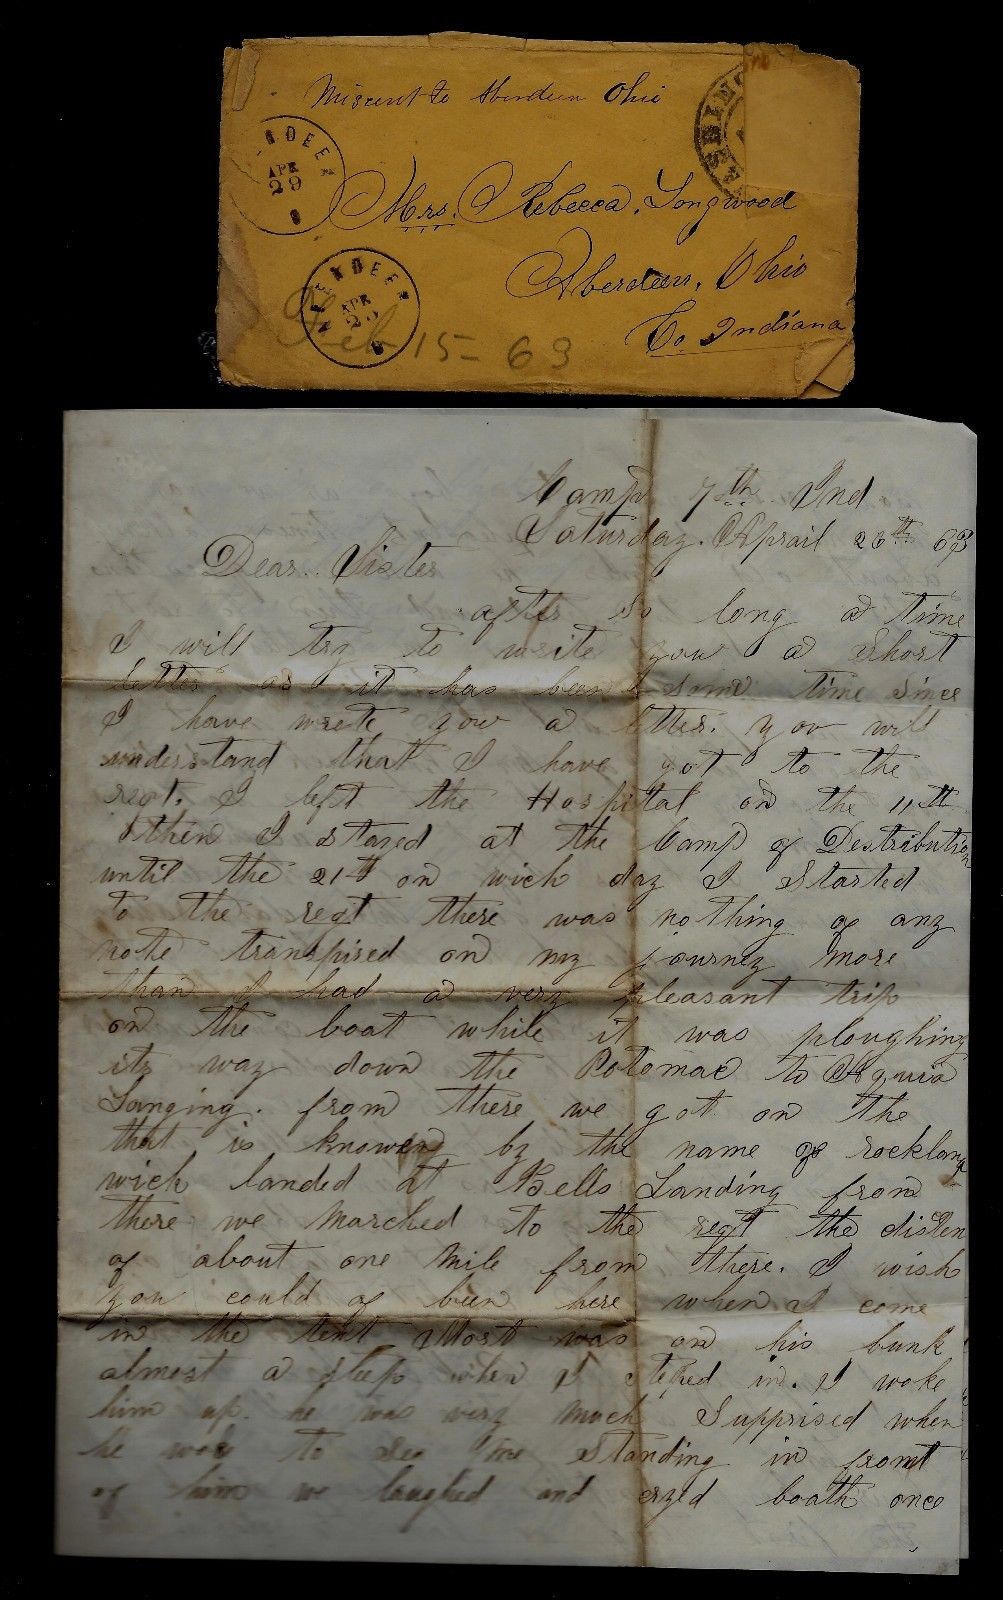 Miscent to Aberdeen Ohio
APR
29
Mrs. Rebecca. Longwood
Aberdeen, Ohio
Co. Indiana
APR
Feb 15 - 63
Camp 7th Ind
Saturday. Aprail 25th 63
Dear Sister
after so long a time
I will try to write you a short
letter as it has been some time since
I have wrete you a letter. you will
understand that I have got to the
regt. I left the Hospital on the 11th
then I stayed at the Camp of Destribution
until the 21st on wich day I started
to the regt there was nothing of any
note transpired on my journey more
than I had a very pleasant trip
on the boat while it was ploughing
its way down the Potomac to Aquia
Langing. from there we got on the
that is knowen by the name of rockland
wich landed at Bells Landing from
there we marched to the regt the disten
of about one mile from there. I wish
you could of been here when I come
in the tent Most was on his bunk
almost a sleep when I steped in. I woke
him up. he was very much Supprised when
he woke to see me standing in fromt
of him we laughed and cryed boath once